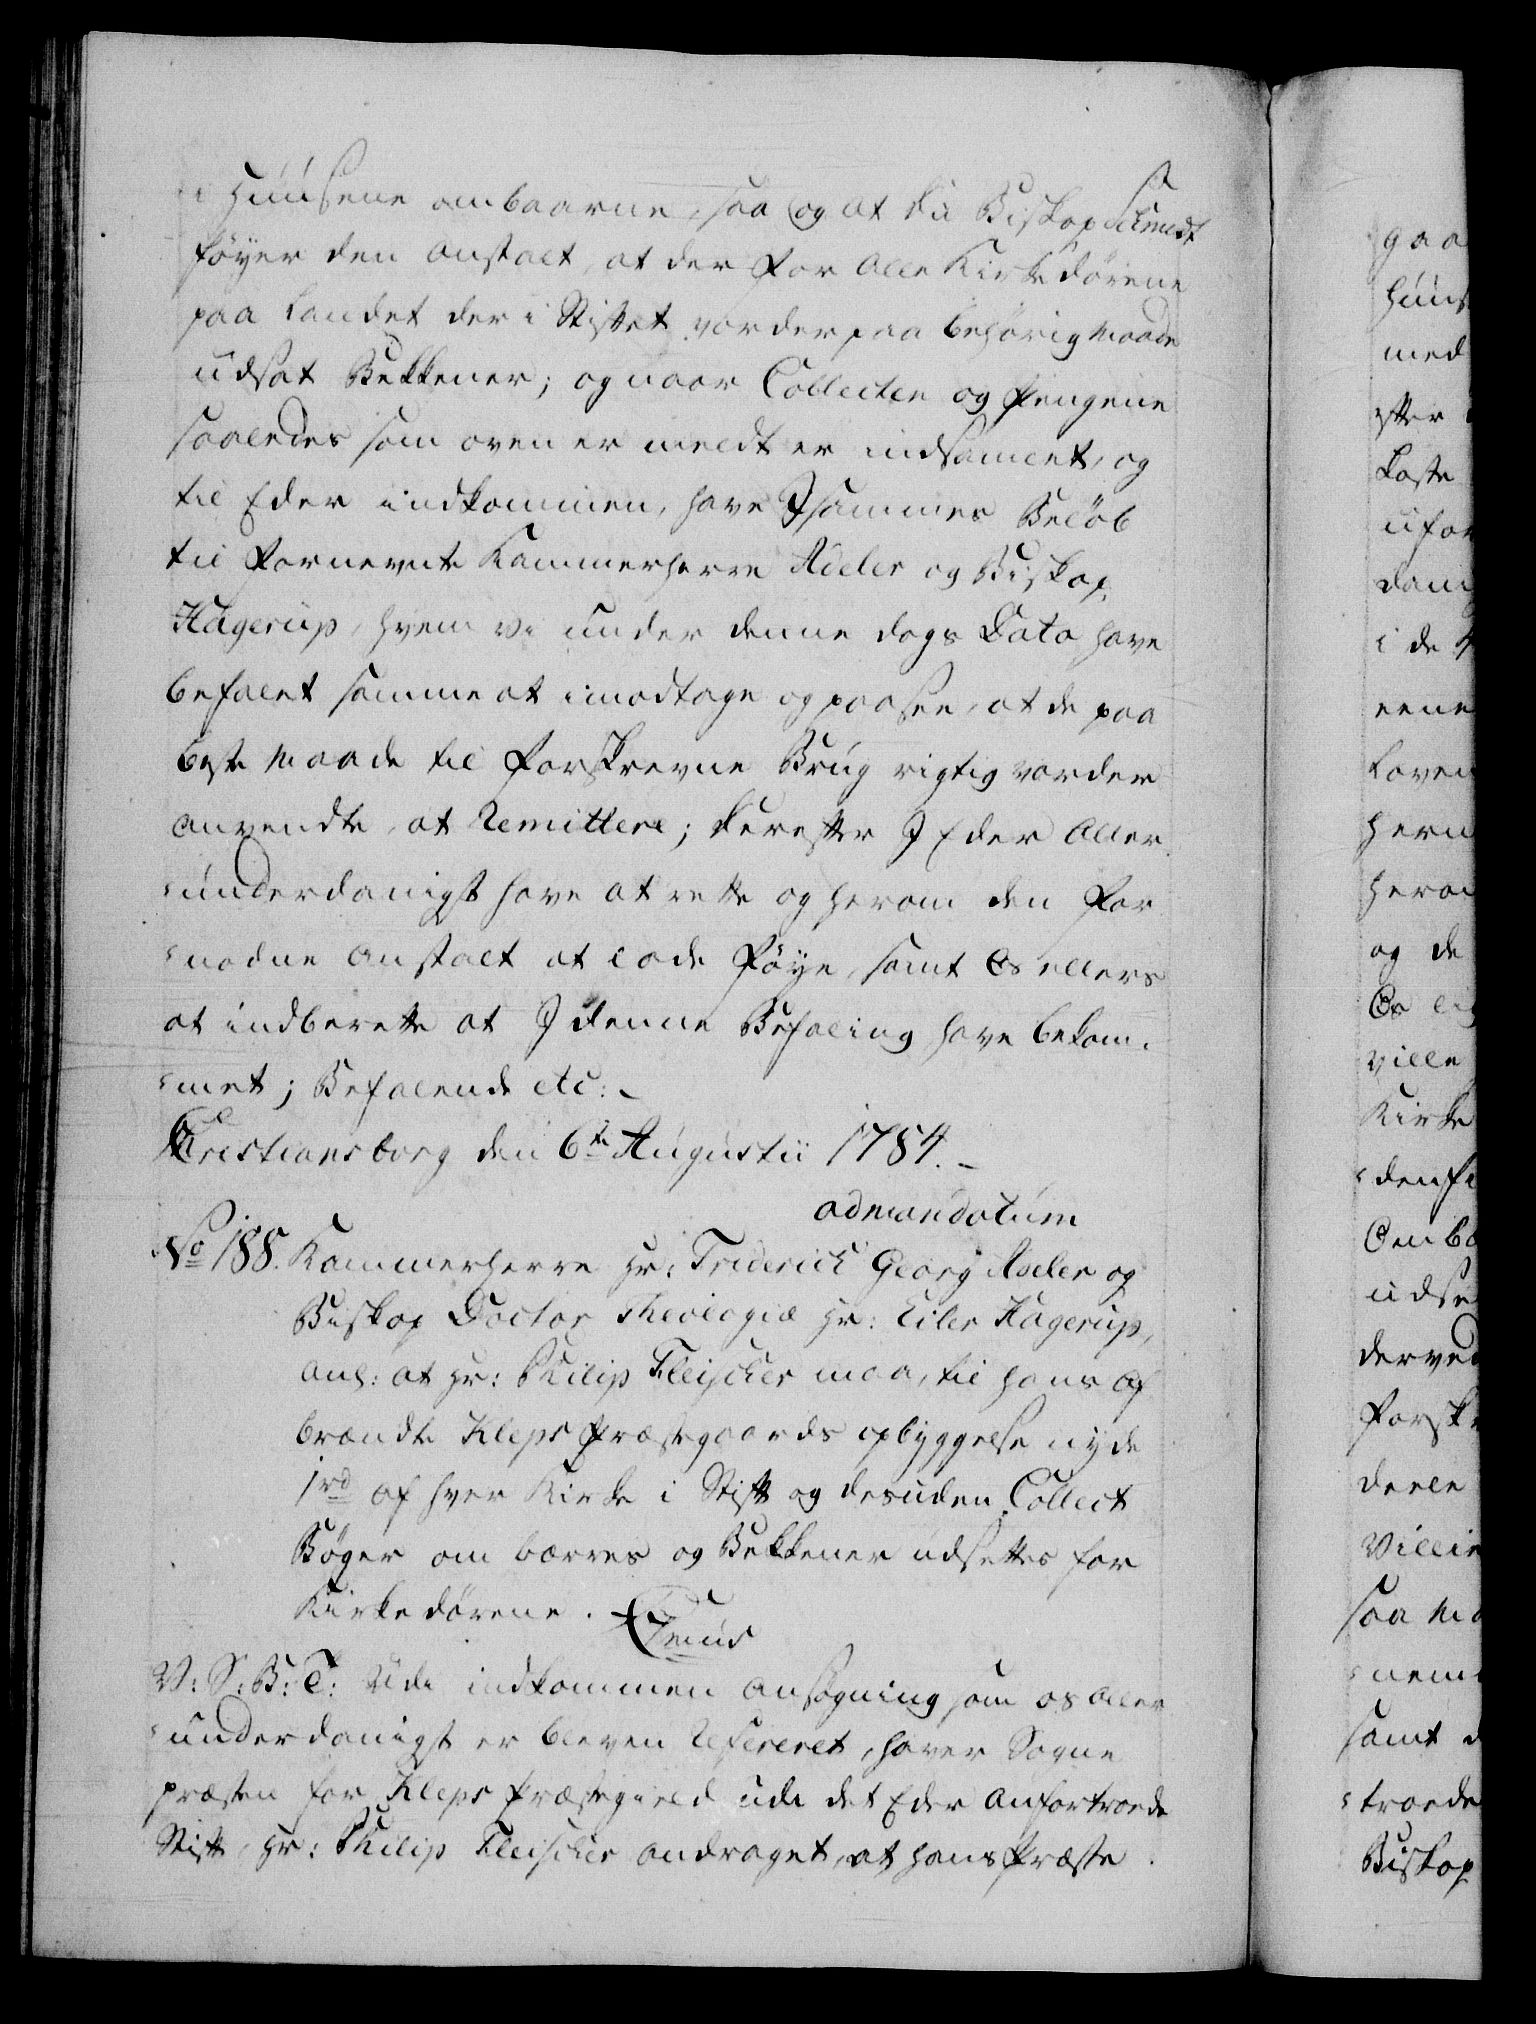 i Huusene ombaarne, saa og at du Biskop Schmidt
føyer den anstalt, at der for alle Kirkedørene
paa Landet der i Stiftet vorder paa behørig maade
udsat Bekkener; og naar Collecten og Pengene
saaledes som oven er meldt er indsamlet, og
til Eder indkommen, have I sammes Beløb
til fornevnte Kammerherre Adeler og Biskop
Hagerup, hvem vi under denne dags Dato have
befalet samme at imodtage og paasee, at de paa
beste Maade til forskrevne Brug rigtig vorder
anvendte, at Remittere; derefter I Eder Aller
underdanigst have at rette og herom den for
nødne anstalt at lade føye, samt Os ellers
at indberette at I denne Befaling have bekom-
met; Befalende etc:
Christiansborg den 6te Augustii 1784.
ad mandatum
No 188. Kammerherre Hr: Friderich Georg Adeler og
Biskop Doctor Theologiæ Hr: Eiler Hagerup,
anl: at Hr: Philip Fleischer maa, til hans af
brændte Kleps Præstegaards opbyggelse nyde
1rd af hver Kirke i Stift og desuden Collect
Bøger om bæres og Bekkener udsettes for
Kirkedørene.
V: S: B: T: Udi indkommen ansøgning som os aller
underdanigst er bleven Refereret, haver Sogne
præsten for Kleps Præstegield udi det Eder anfortroede
Stift, Hr: Philip Fleischer andraget, at hans Præste
gaa
huus
med
efter
Laste
ufor
dan
i de
eene
Loven
hern
heron
og de
Os
ville
Kirke
denf
Omb
udse
derved
forsk
deele
Villie
saa
nem
samt
troede
Biskop